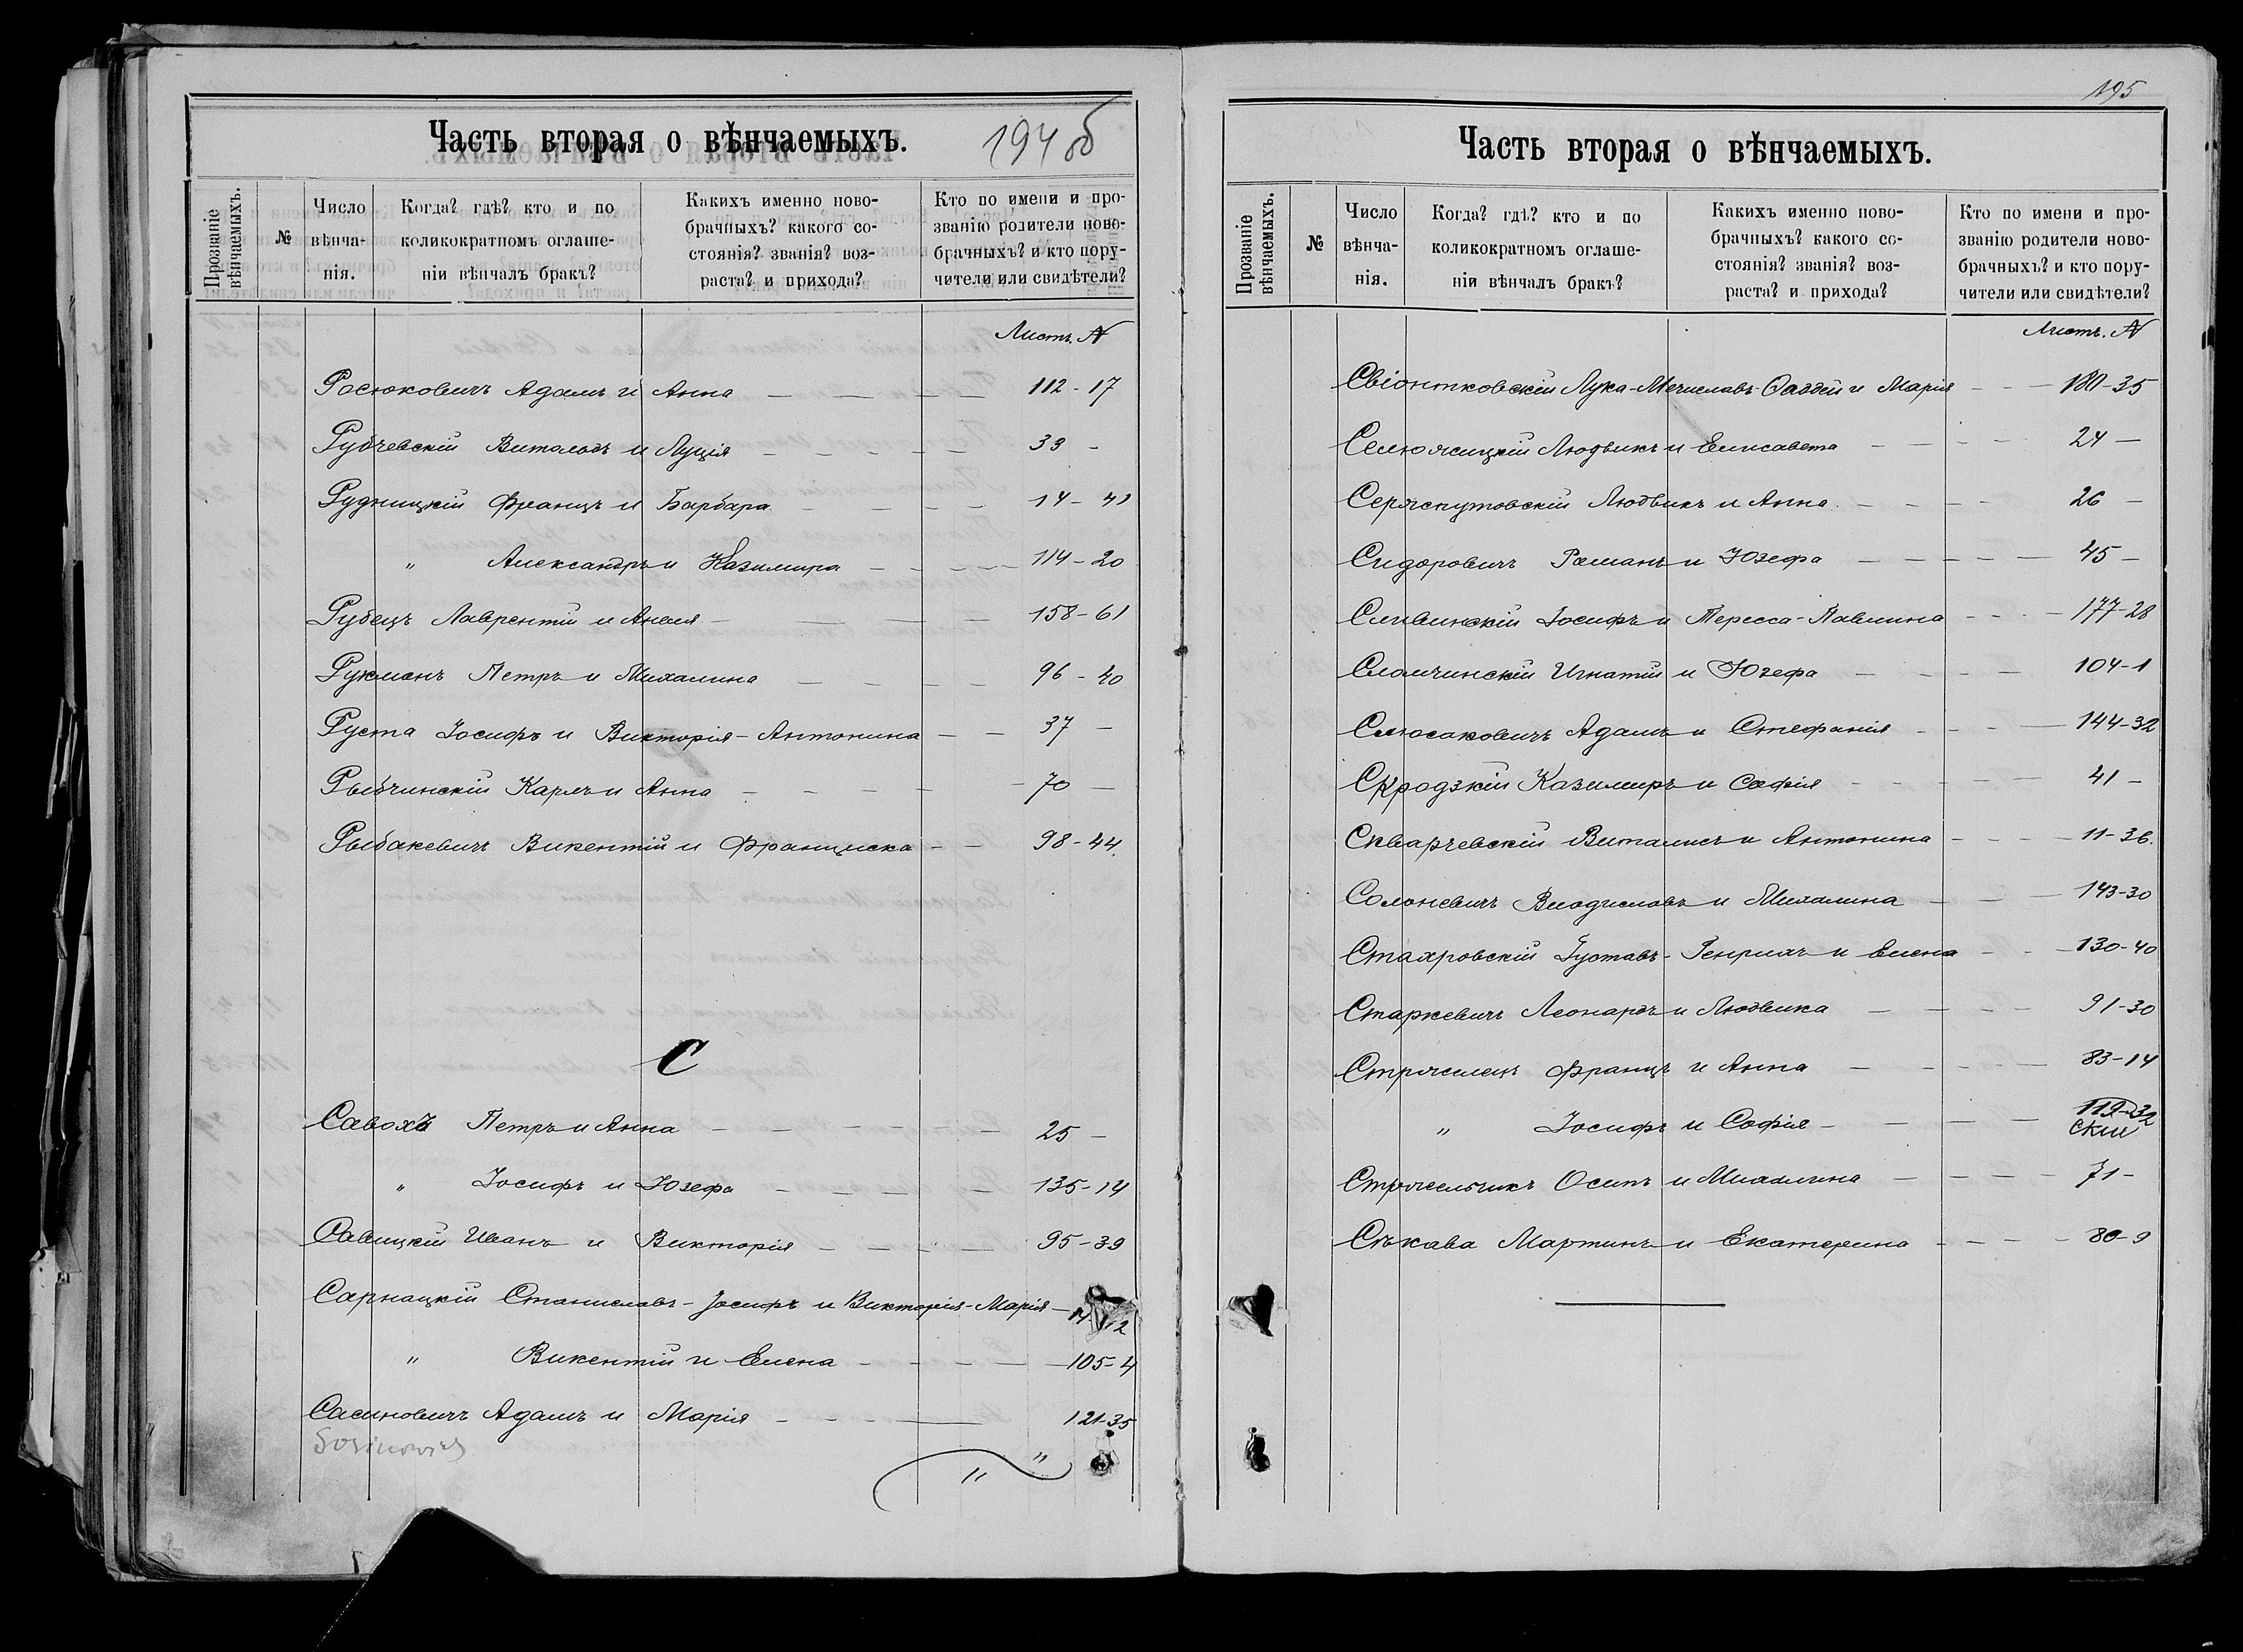 Часть вторая о вѣнчаемыхъ.
194 об
Прозваніе вѣнчаемыхъ.
№
Число вѣнча-нія.
Когда? гдѣ? кто и по коликократномъ оглаше-ніи вѣнчалъ бракъ?
Какихъ именно ново-брачныхъ? какого со-стоянія? званія? воз-раста? и прихода?
Кто по имени и про-званію родители ново-брачныхъ? и кто пору-чители или свидѣтели?
Листъ. №
Росюковичъ Адамъ и Анна — — — — 112 - 17
Рубчевскій Витольдъ и Луція — — — — 33 -
Рудницкій Францъ и Барбара — — — — 14 - 41
" Александръ и Казимира — — — — 114 - 20
Рубецъ Лаврентій и Анеля — — — — 158 - 61
Рукманъ Петръ и Михалина — — — — 96 - 40
Руста Іосифъ и Викторія - Антонина — — 37 —
Рыбчинскій Карлъ и Анна — — — — 70 —
Рыбакевичъ Викентій и Франциска — — 98 - 44.
С
Савохъ Петръ и Анна — — — — 25 —
" Іосифъ и Юзефа — — — — 135 - 14
Савицкій Иванъ и Викторія — — — — 95 - 39
Сарнацкій Станиславъ - Іосифъ и Викторія - Марія —
" Викентій и Елена — — — — 105 - 4
Сасиновичъ Адамъ и Марія — — — 121 - 35
Sosinowicz
" "
195
Часть вторая о вѣнчаемыхъ.
Прозваніе вѣнчаемыхъ.
№
Число вѣнча-нія.
Когда? гдѣ? кто и по коликократномъ оглаше-ніи вѣнчалъ бракъ?
Какихъ именно ново-брачныхъ? какого со-стоянія? званія? воз-раста? и прихода?
Кто по имени и про-званію родители ново-брачныхъ? и кто пору-чители или свидѣтели?
Листъ. №
Свіонтковскій Лука - Мечиславъ - Фаддей и Марія — — 180 - 35
Селюжицкій Людвикъ и Елисавета — — — 24 —
Сержпутовскій Людвикъ и Анна — — — 26 —
Сидоровичъ Романъ и Юзефа — — — — 45 —
Сливинскій Іосифъ и Тересса - Павлина — — — 177 - 28
Сломчинскій Игнатій и Юзефа — — — 104 - 1
Слюсаковичъ Адамъ и Стефанія — — — 144 - 32
Скродзкій Казимиръ и Софія — — — — 41 —
Скварчевскій Виталисъ и Антонина — — — 11 - 36.
Солоневичъ Владиславъ и Михалина — — — 143 - 30
Стахровскій Густавъ - Генрихъ и Елена — — 130 - 40
Старкевичъ Леонардъ и Людвика — — — 91 - 30
Стржелецъ Францъ и Анна — — — — 83 - 14
" Іосифъ и Софія — — — — 119 - 32
ский
Стржельчикъ Осипъ и Михалина — — — — 71 -
Сѣкава Мартинъ и Екатерина — — — — 80 - 9